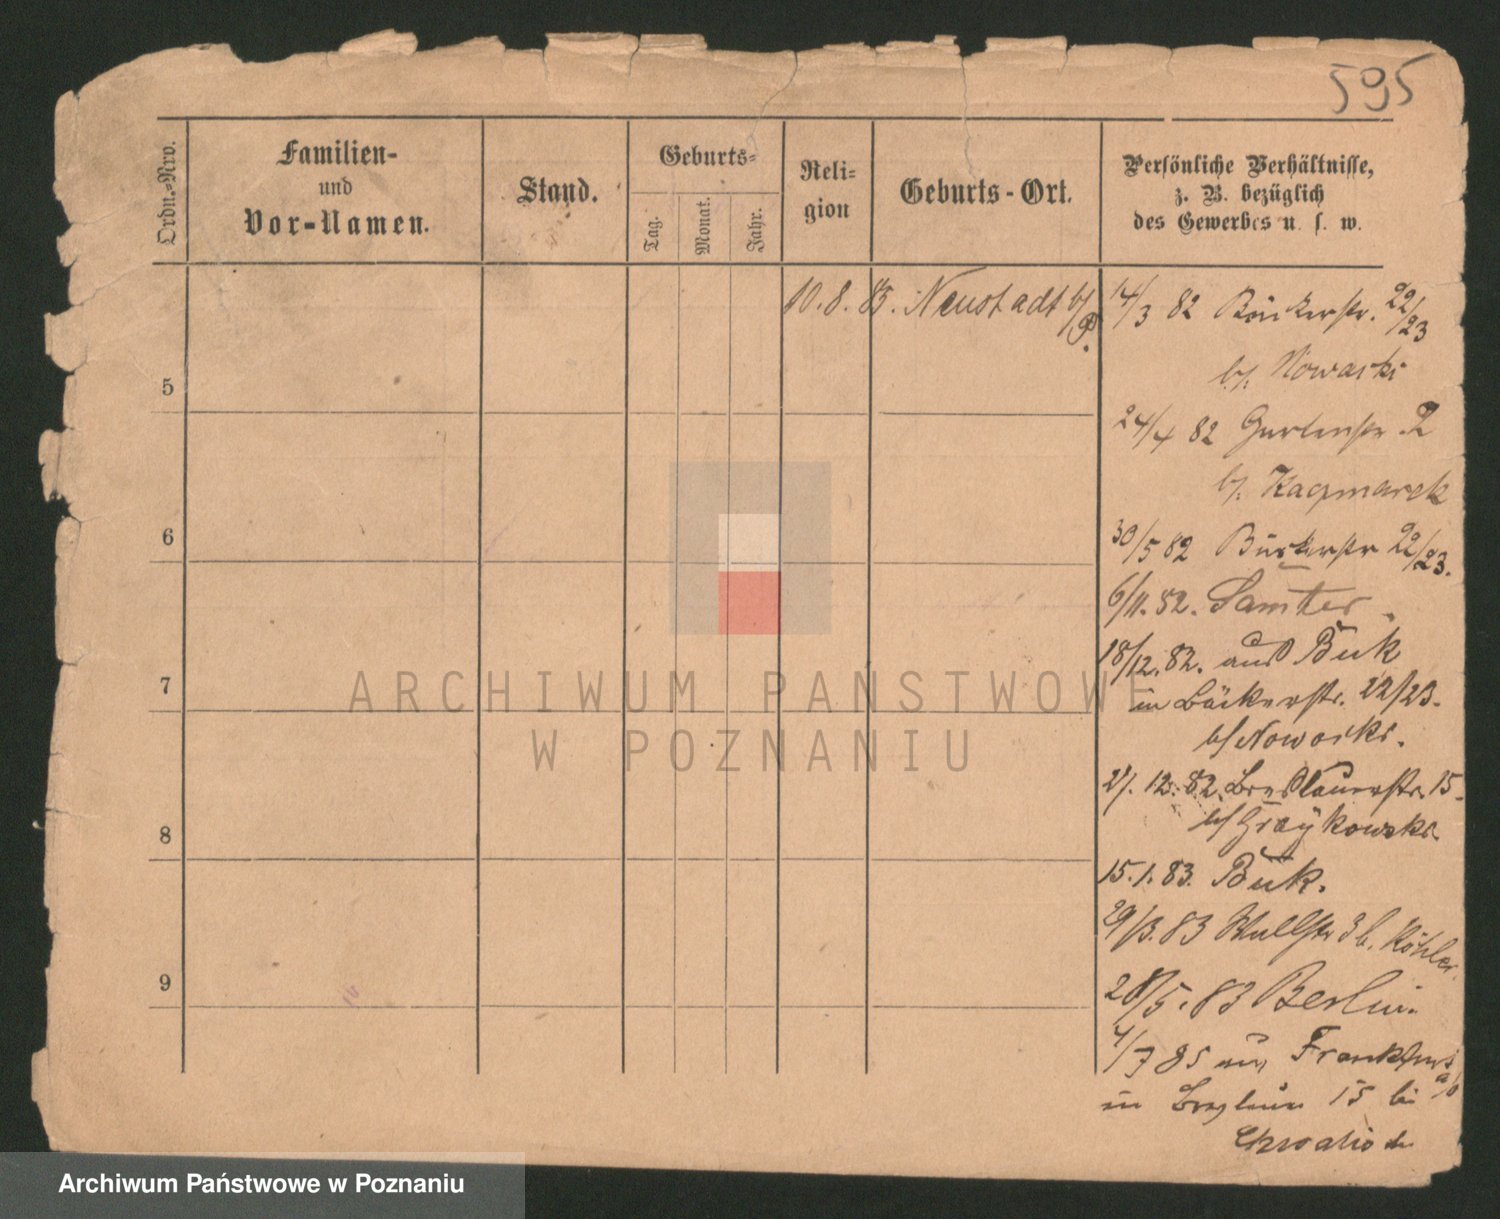 595
Ordn.-Nro.
Familien-
und
Vor-Namen.
Stand.
Geburts-
Tag.
Monat.
Jahr.
Reli-
gion
Geburts-Ort.
Persönliche Verhältnisse,
z. B. bezüglich
des Gewerbes u. s. w.
10. 8. 85. Neustadt b/
P.
14/3 82 Bäckerstr. 22/23
b/. Nowacki
24/4 82 Gartenstr. 2
b/. Kaczmarek
30/5 82 Bäckerstr 22/23.
6/11. 82. Samter.
18/12. 82. aus Buk
in Bäckerstr. 22/23.
b/ Nowacki.
21. 12. 82. Breslauerstr. 15.
b/
15. 1. 83. Buk.
29/3. 83 Wallstr 3 b. Köhler
28/5. 83 Berlin.
4/7 85 aus Frankfurt
a/O
in 15 bei
5
6
7
8
9
ARCHIWUM PAŃSTWOWE
W POZNANIU
Archiwum Państwowe w Poznaniu